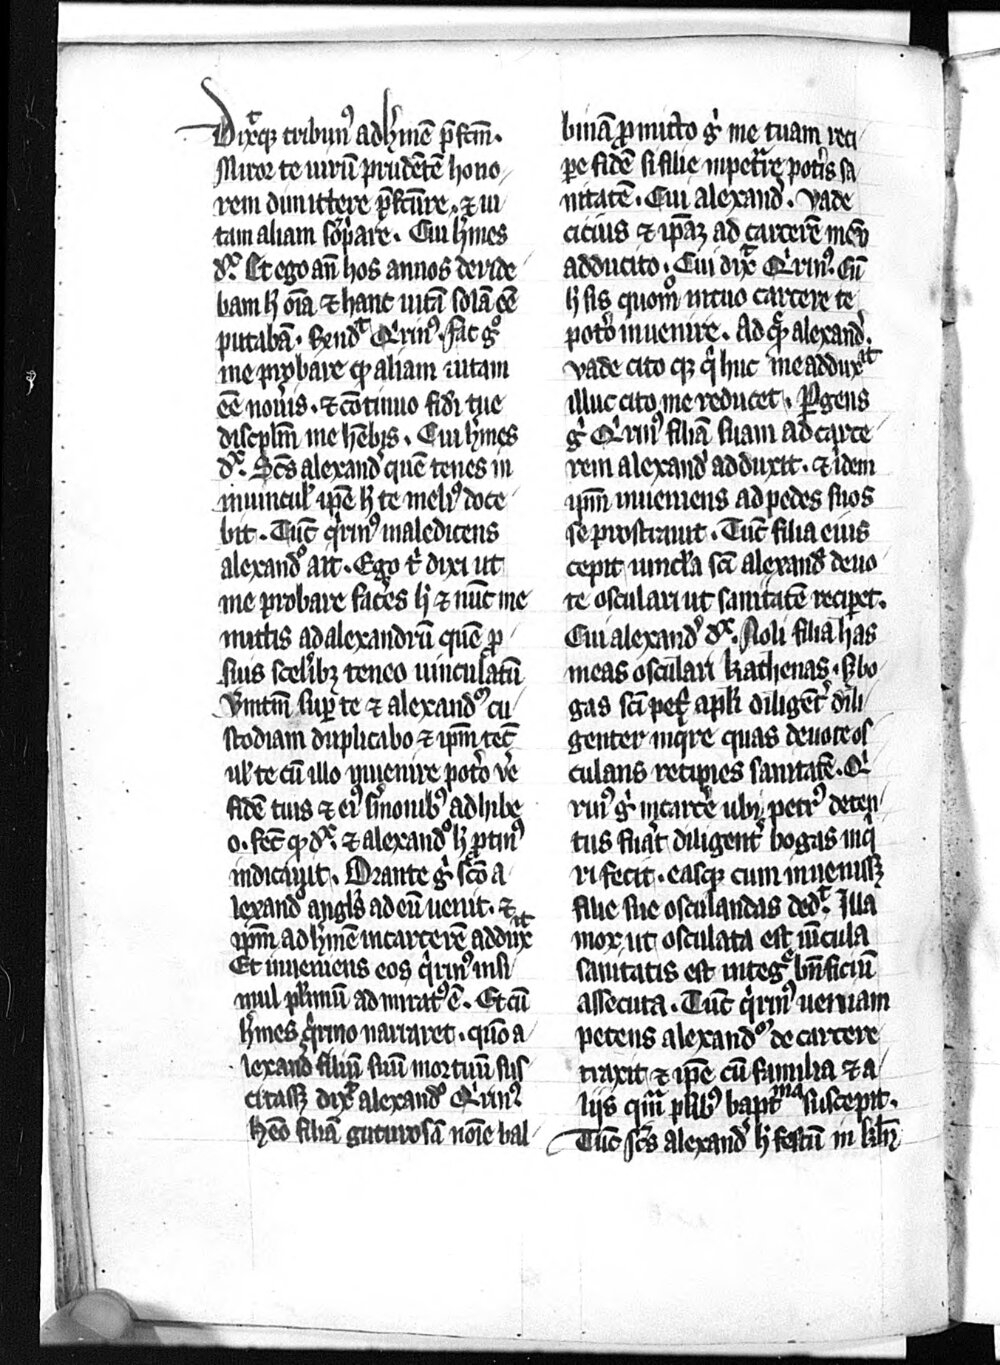 Dixitqꝫ tribunꝰ ad h̓menē p̄fctm̄.
Miror te uirū prudētē hono
rem dimittere p̄fcture. ⁊ ui
tam aliam sōpare. Cui h̓mes
dx̄. Et ego an̄ hos annos deride
bam h̓ oīa ⁊ hanc uitā solā eē
putabā. Rendt̄ Qͥrinꝰ. Fac gͦ
me probare ꝙ aliam uitam
eē noūis. ⁊ cōtinuo fidi tue
discplm̄ me hēbis. Cui h̓mes
dx̄. Scs̄ alexand̓ quē tenes in
inuincul̓ ip̄e h̓ te melꝰ doce
bit. Tūc qͥrinꝰ maledicens
alexandͦ ait. Ego t̄ dixi ut
me probare faceres h̓ ⁊ nūc me
mittis ad alexandrū quē p̄
suis scelībꝫ teneo uinculatū
Ꝟmtm̄ suꝑ te ⁊ alexandꝰ cu
stodiam duplicabo ⁊ ip̄m tec̄
ul̓ te cū illo inuenire potō ve
fidē tuis ⁊ eiꝰ s̓monibꝰ adhibe
o. fec̄ ꝙ dx̄. ⁊ alexandͦ h̓ ꝓtinꝰ
indicauit. Orante gͥ scō a
lexandͦ angls̄ ad eū uenit. ⁊
ip̄m ad h̓menē in carcerē adduxit
Et inueniens eos qͥrinꝰ insi
mul pl̓imū admiratꝰ ē. Et cū
h̓mes qͥrino narraret. quō a
lexand̓ filiū suū mortuū sus
citassꝫ dixͭ alexandͦ Qͥrinꝰ
h̓eo filiā guturosā noīe bal
binā ꝓmitto gͥ me tuam reci
ꝑe fidē si filie inpetͣre potīs sa
nitatē. Cui alexand̓. vade
cicius ⁊ ip̄aꝫ ad carcerē meū
adducito. Cui dixͭ Qͥrinꝰ. Cū
h̓ sis quomͦ in tuo carcere te
potō inuenire. Ad qͣ alexand̓.
vade cito qꝫ qͥ huc me adduxͭ
illuc cito me reducet. Pergens
gͥ Qͥrinꝰ filiā suam ad carce
rem alexandͥ adduxit. ⁊ idem
ip̄m inueniens ad pedes suos
se prostrauit. Tūc filia eius
cepit uincl̓a sc̄i alexandͥ deuo
te osculari ut sanitatē reciꝑet.
Cui alexand̓ dx̄. Noli filia has
meas osculari kathenas. s̓ bo
gas sc̄i petͥ apl̓i diligent̓ dili
genter inqͥre quas deuote os
culans recipies sanitatē. Qͥ
rinꝰ gͥ in carcē ubi petrꝰ deten
tus fūat diligent̓ bogas inqͥ
ri fecit. easqꝫ cum inuenissꝫ
filie sue osculandas dedͭ. Illa
mox ut osculata est uīcula
sanitatis est integͣ bn̄ficiū
assecuta. Tūc qͥrinꝰ ueniam
petens alexandꝰ de carcere
traxit ⁊ ip̄e cū familia ⁊ a
liis qͣm plͥbꝰ baptͫª suscepit.
Tūc scs̄ alexand̓ h̓ festū in klr̄